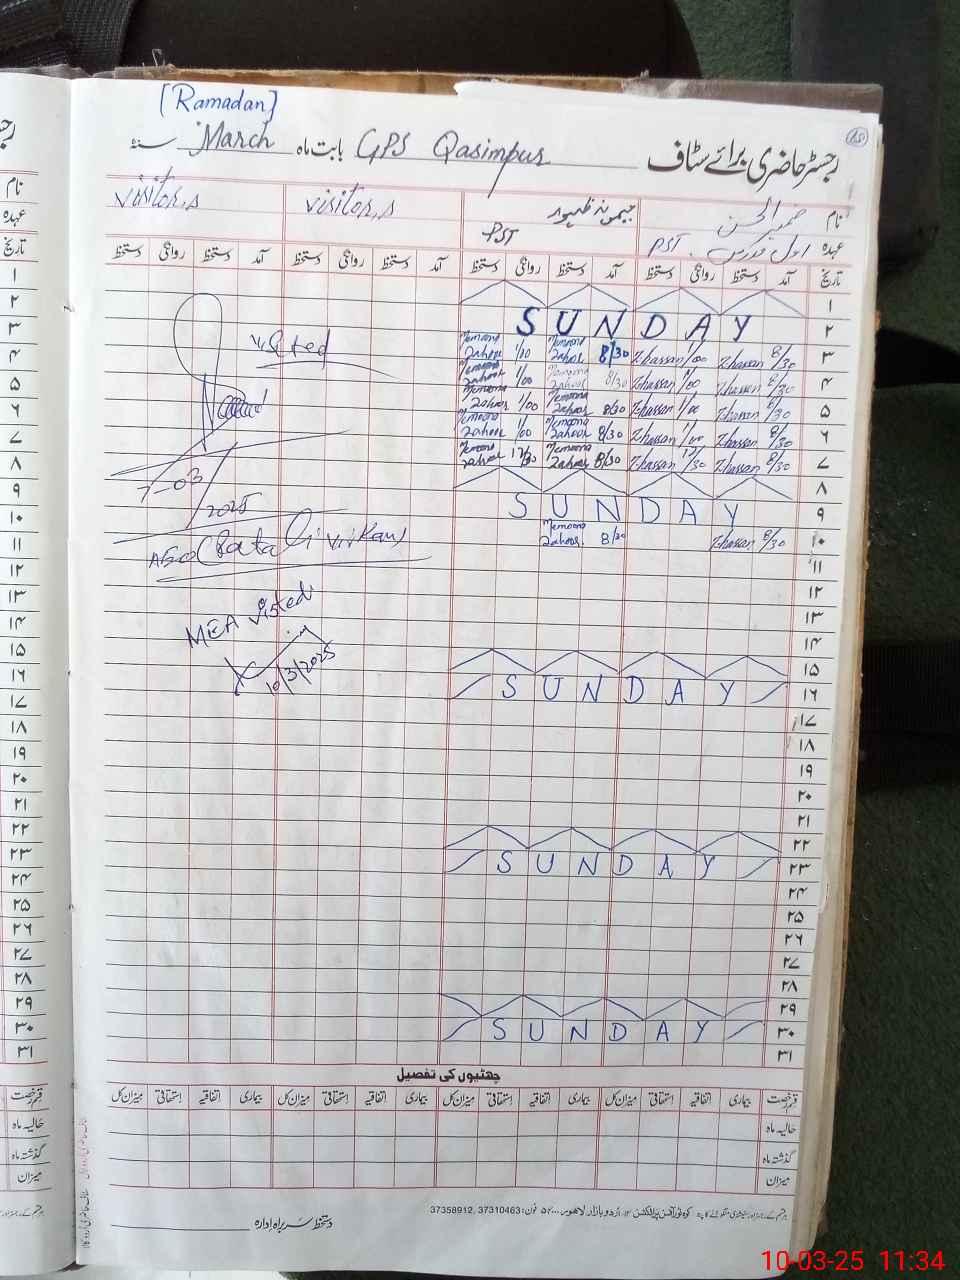 [Ramadan]
رجسٹر حاضری برائے سٹاف GPS Qasimpur بابت ماہ March سنہ
نام ضمیر الحسن میمونہ ظہور Visitor,s Visitor,s
عہدہ اول مدرس PST PST
تاریخ آمد دستخط روانگی دستخط آمد دستخط روانگی دستخط آمد دستخط روانگی دستخط آمد دستخط روانگی دستخط
۱
۲ SUNDAY
۳ Memoona Zahoor 1/00 Memoona Zahoor 8/30 Z.hassan 1/00 Z.hassan 8/30
۴ Memoona Zahoor 1/00 Memoona Zahoor 8/30 Z.hassan 1/00 Z.hassan 8/30
۵ Memoona Zahoor 1/00 Memoona Zahoor 8/30 Z.hassan 1/00 Z.hassan 8/30
۶ Memoona Zahoor 1/00 Memoona Zahoor 8/30 Z.hassan 1/00 Z.hassan 8/30
۷ Memoona Zahoor 12/30 Memoona Zahoor 8/30 Z.hassan 12/30 Z.hassan 8/30
۸
۹ SUNDAY
۱۰ Memoona Zahoor 8/30 Z.hassan 8/30
۱۱
۱۲
۱۳
۱۴
۱۵
۱۶ SUNDAY
۱۷
۱۸
۱۹
۲۰
۲۱
۲۲
۲۳ SUNDAY
۲۴
۲۵
۲۶
۲۷
۲۸
۲۹
۳۰ SUNDAY
۳۱
visited
7-03
2025
MEA visted
10/3/2025
چھٹیوں کی تفصیل
قسم رخصت بیماری اتفاقیہ استحقاقی میزان کل بیماری اتفاقیہ استحقاقی میزان کل بیماری اتفاقیہ استحقاقی میزان کل بیماری اتفاقیہ استحقاقی میزان کل
حالیہ ماہ
گذشتہ ماہ
میزان
اردو بازار لاہور فون: 37310463, 37358912
دستخط سربراہ ادارہ
10-03-25 11:34